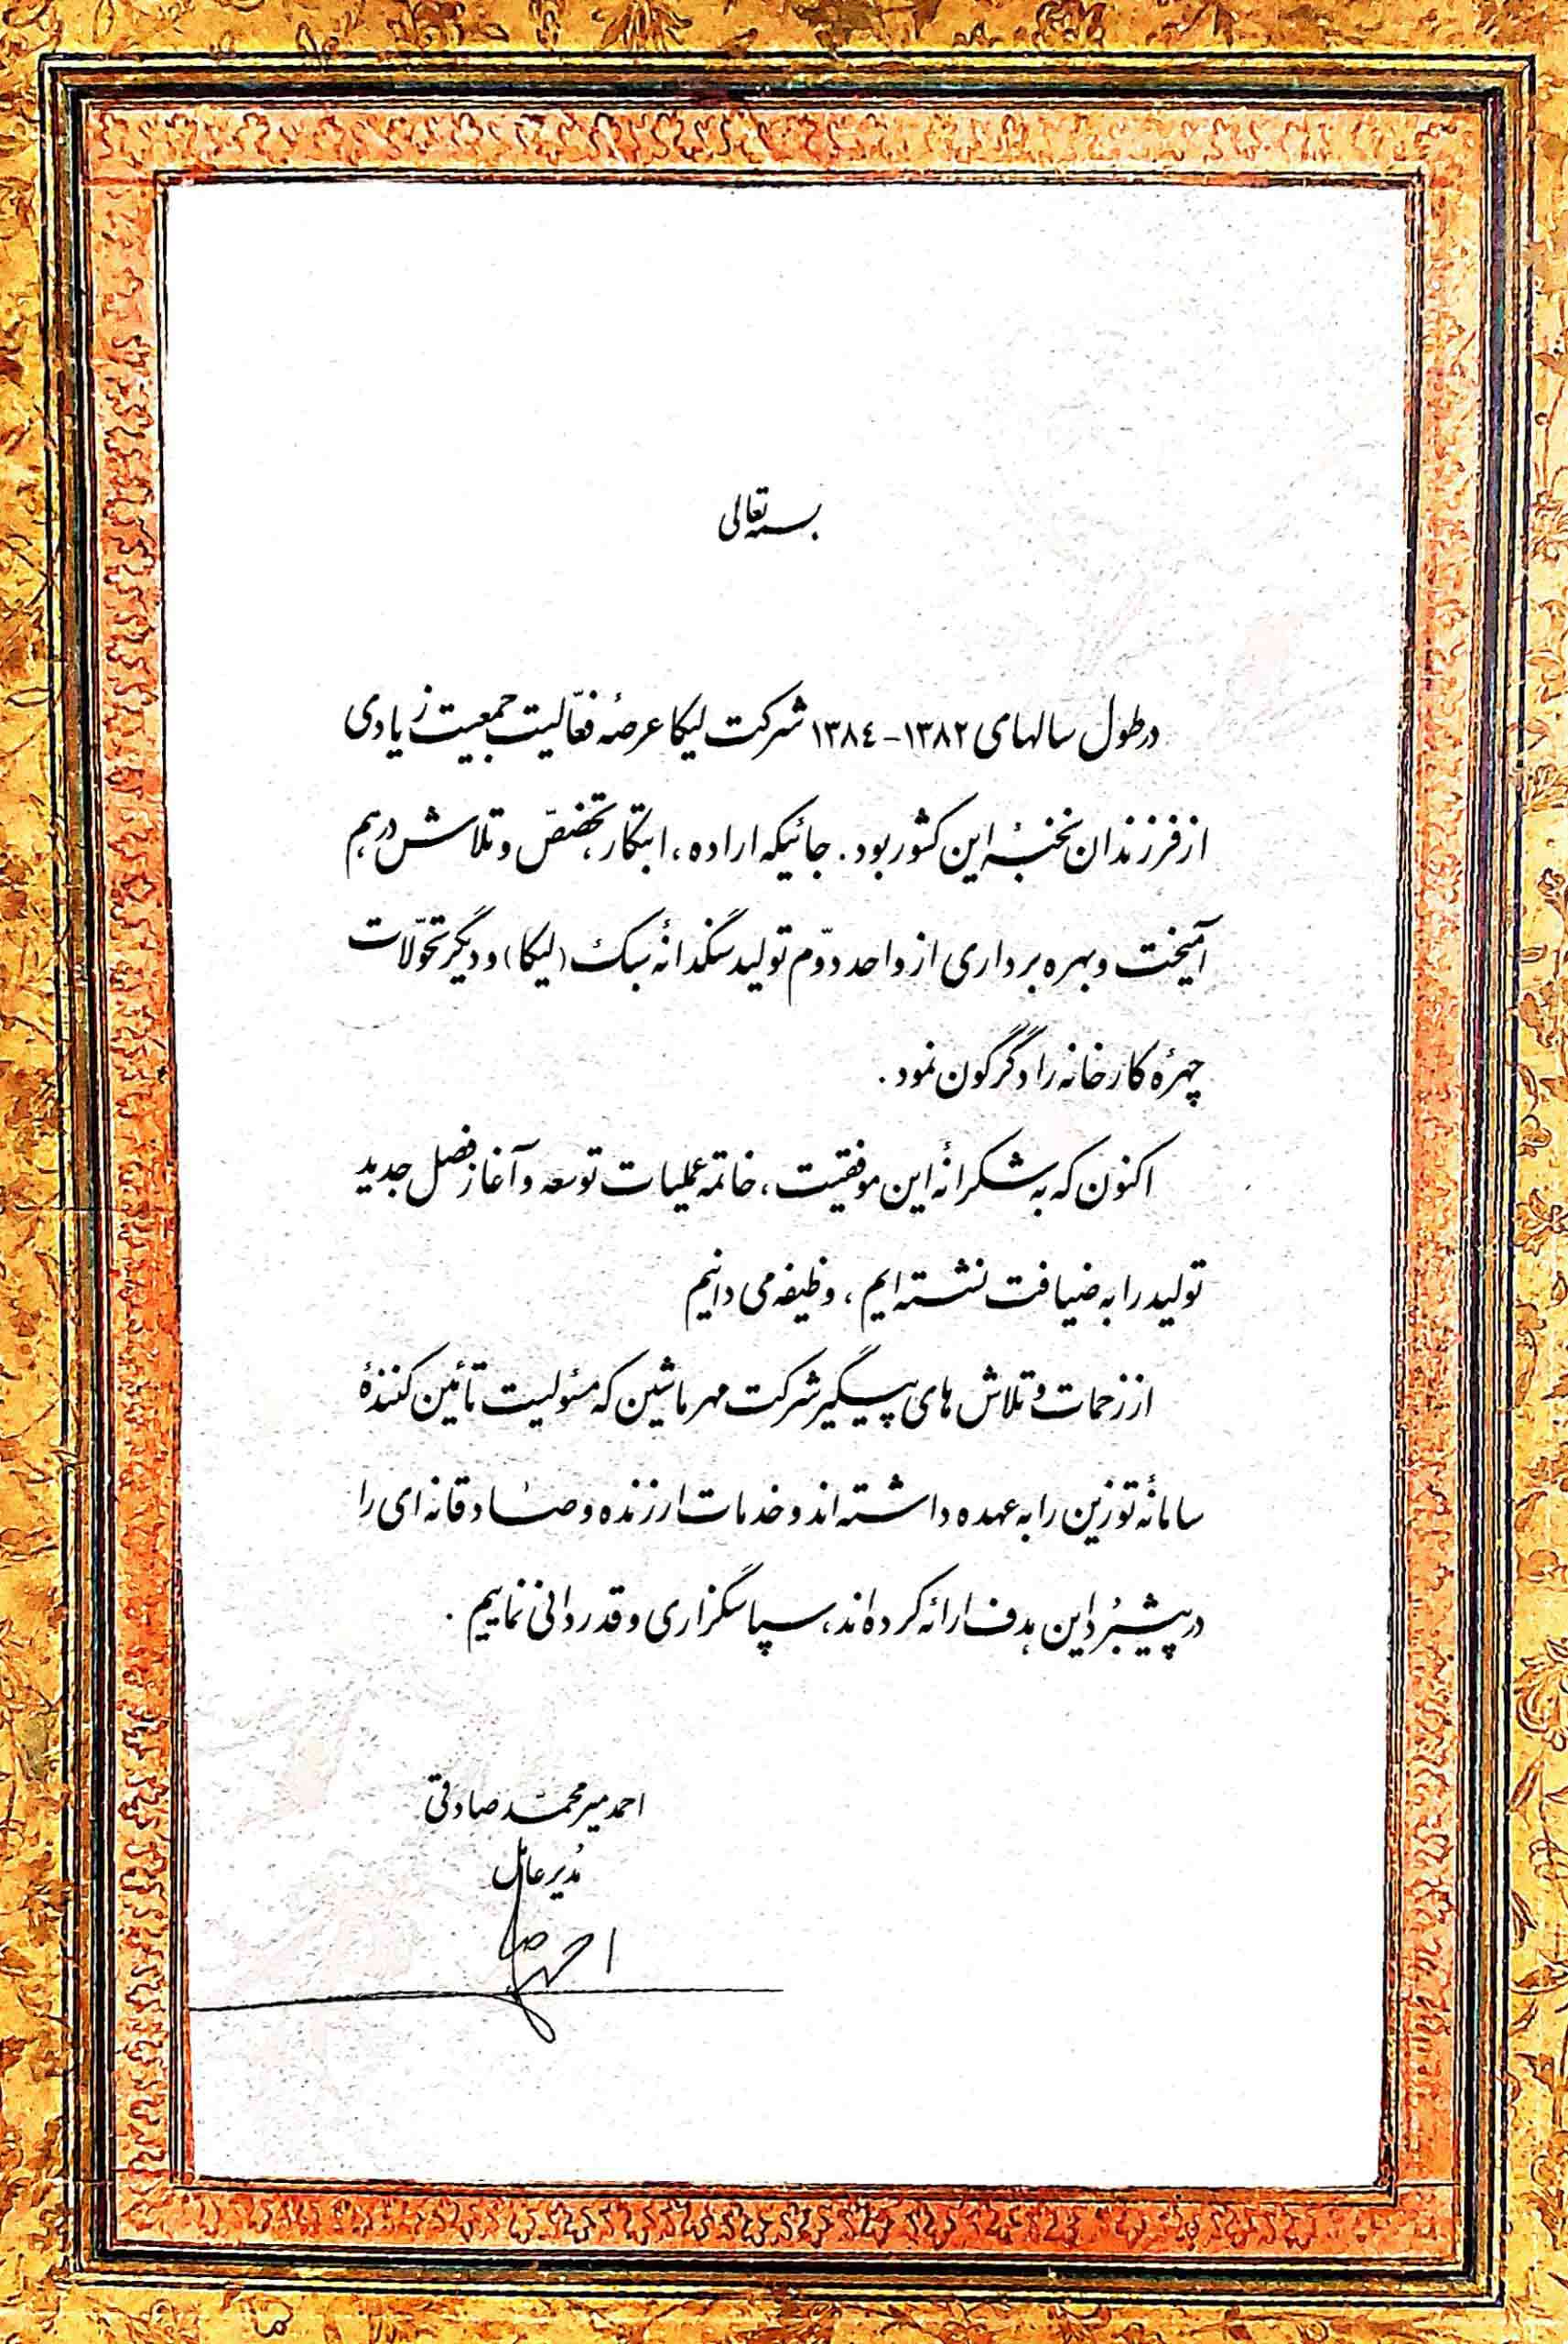 بسمه تعالی
در طول سالهای ۱۳۸۲-۱۳۸٤ شرکت لیکا عرصهٔ فعّالیت جمعیت زیادی
از فرزندان نخبهٔ این کشور بود. جائیکه اراده، ابتکار، تخصّص و تلاش درهم
آمیخت و بهره برداری از واحد دوّم تولید سنگدانهٔ سبک (لیکا) و دیگر تحوّلات
چهرهٔ کارخانه را دگرگون نمود.
اکنون که به شکرانهٔ این موفقیت، خاتمه عملیات توسعه و آغاز فصل جدید
تولید را به ضیافت نشسته ایم، وظیفه می دانیم
از زحمات و تلاش های پیگیر شرکت مهر ماشین که مسئولیت تأمین کنندهٔ
سامانهٔ توزین را به عهده داشته اند و خدمات ارزنده و صادقانه ای را
در پیشبُرد این هدف ارائه کرده اند، سپاسگزاری و قدردانی نماییم.
احمد میرمحمد صادقی
مُدیر عامل